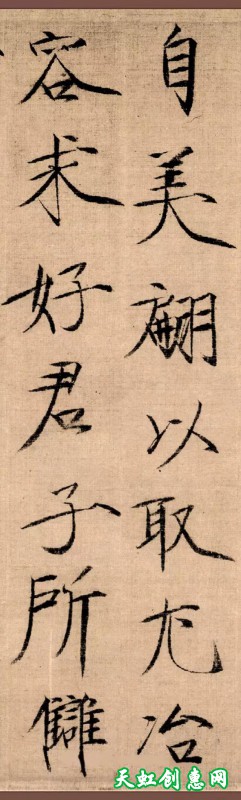 自美翩以取尤冶
容求好君子所讎
天虹创惠网